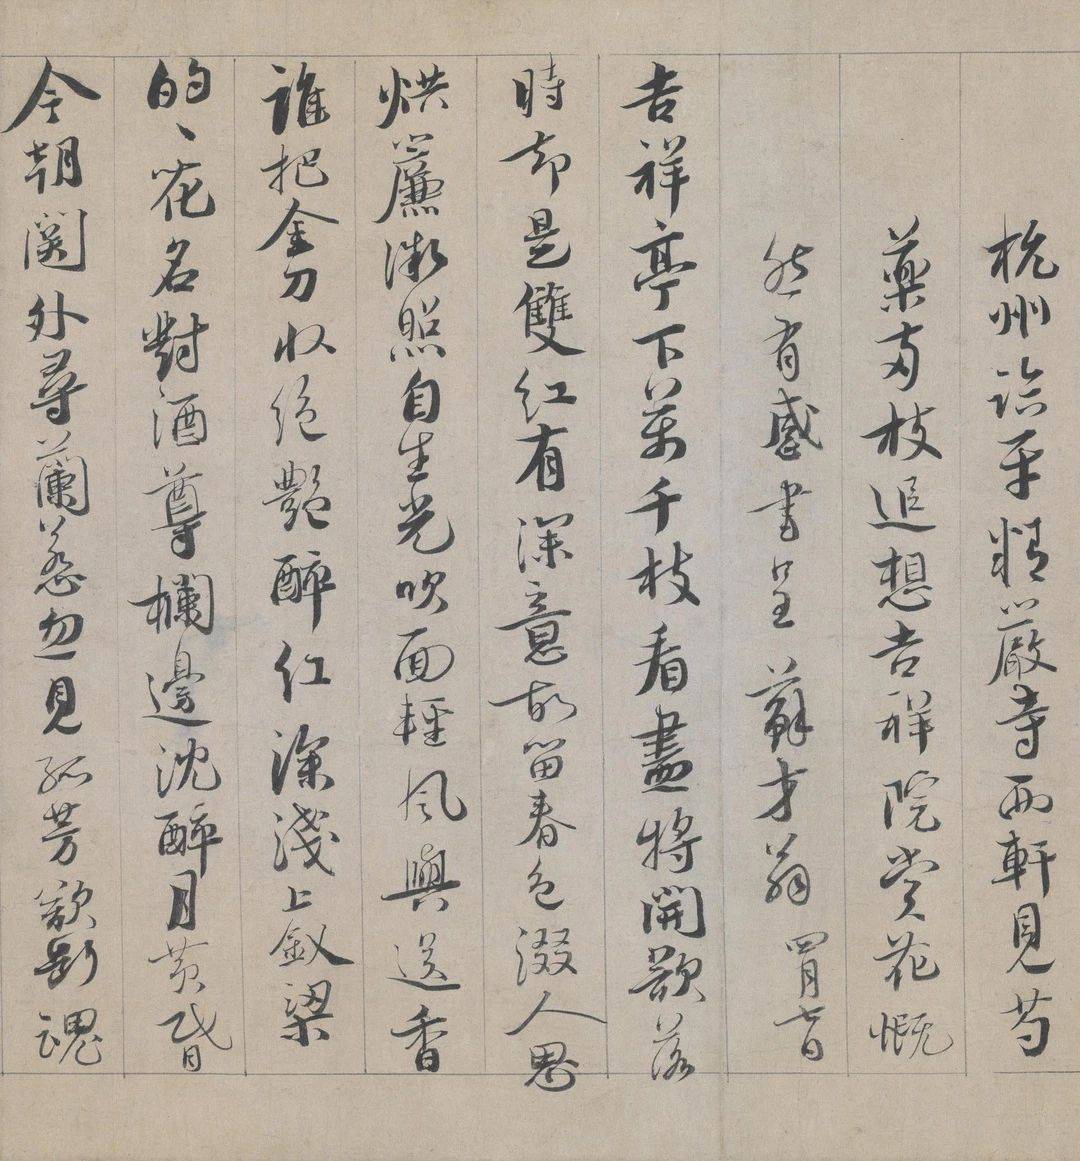 杭州臨平精嚴寺西軒見芍
藥兩枝追想吉祥院賞花慨
然有感書呈蘇才翁 四月七日
吉祥亭下萬千枝看盡將開欲落
時却是雙紅有深意故留春色綴人思
烘簾微照自生光吹面輕風與送香
誰把金刀收絕艷醉紅深淺上釵梁
的、花名對酒尊欄邊沈醉月黃昏
今朝關外尋蘭忽見孤芳欲斷魂